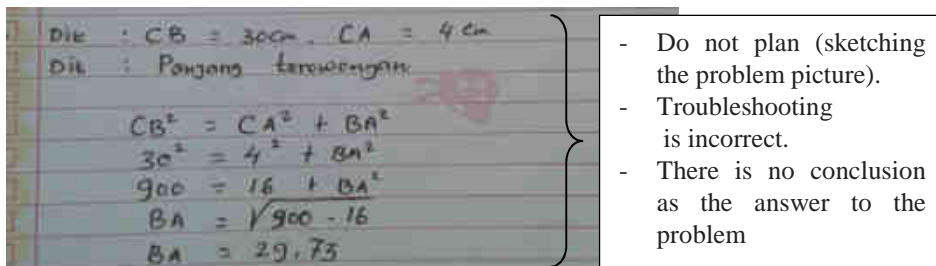 Dik : CB = 30cm. CA = 4 cm
Dit : Panjang terowongan
CB² = CA² + BA²
30² = 4² + BA²
900 = 16 + BA²
BA = √900 - 16
BA = 29,73
- Do not plan (sketching
the problem picture).
- Troubleshooting
is incorrect.
- There is no conclusion
as the answer to the
problem